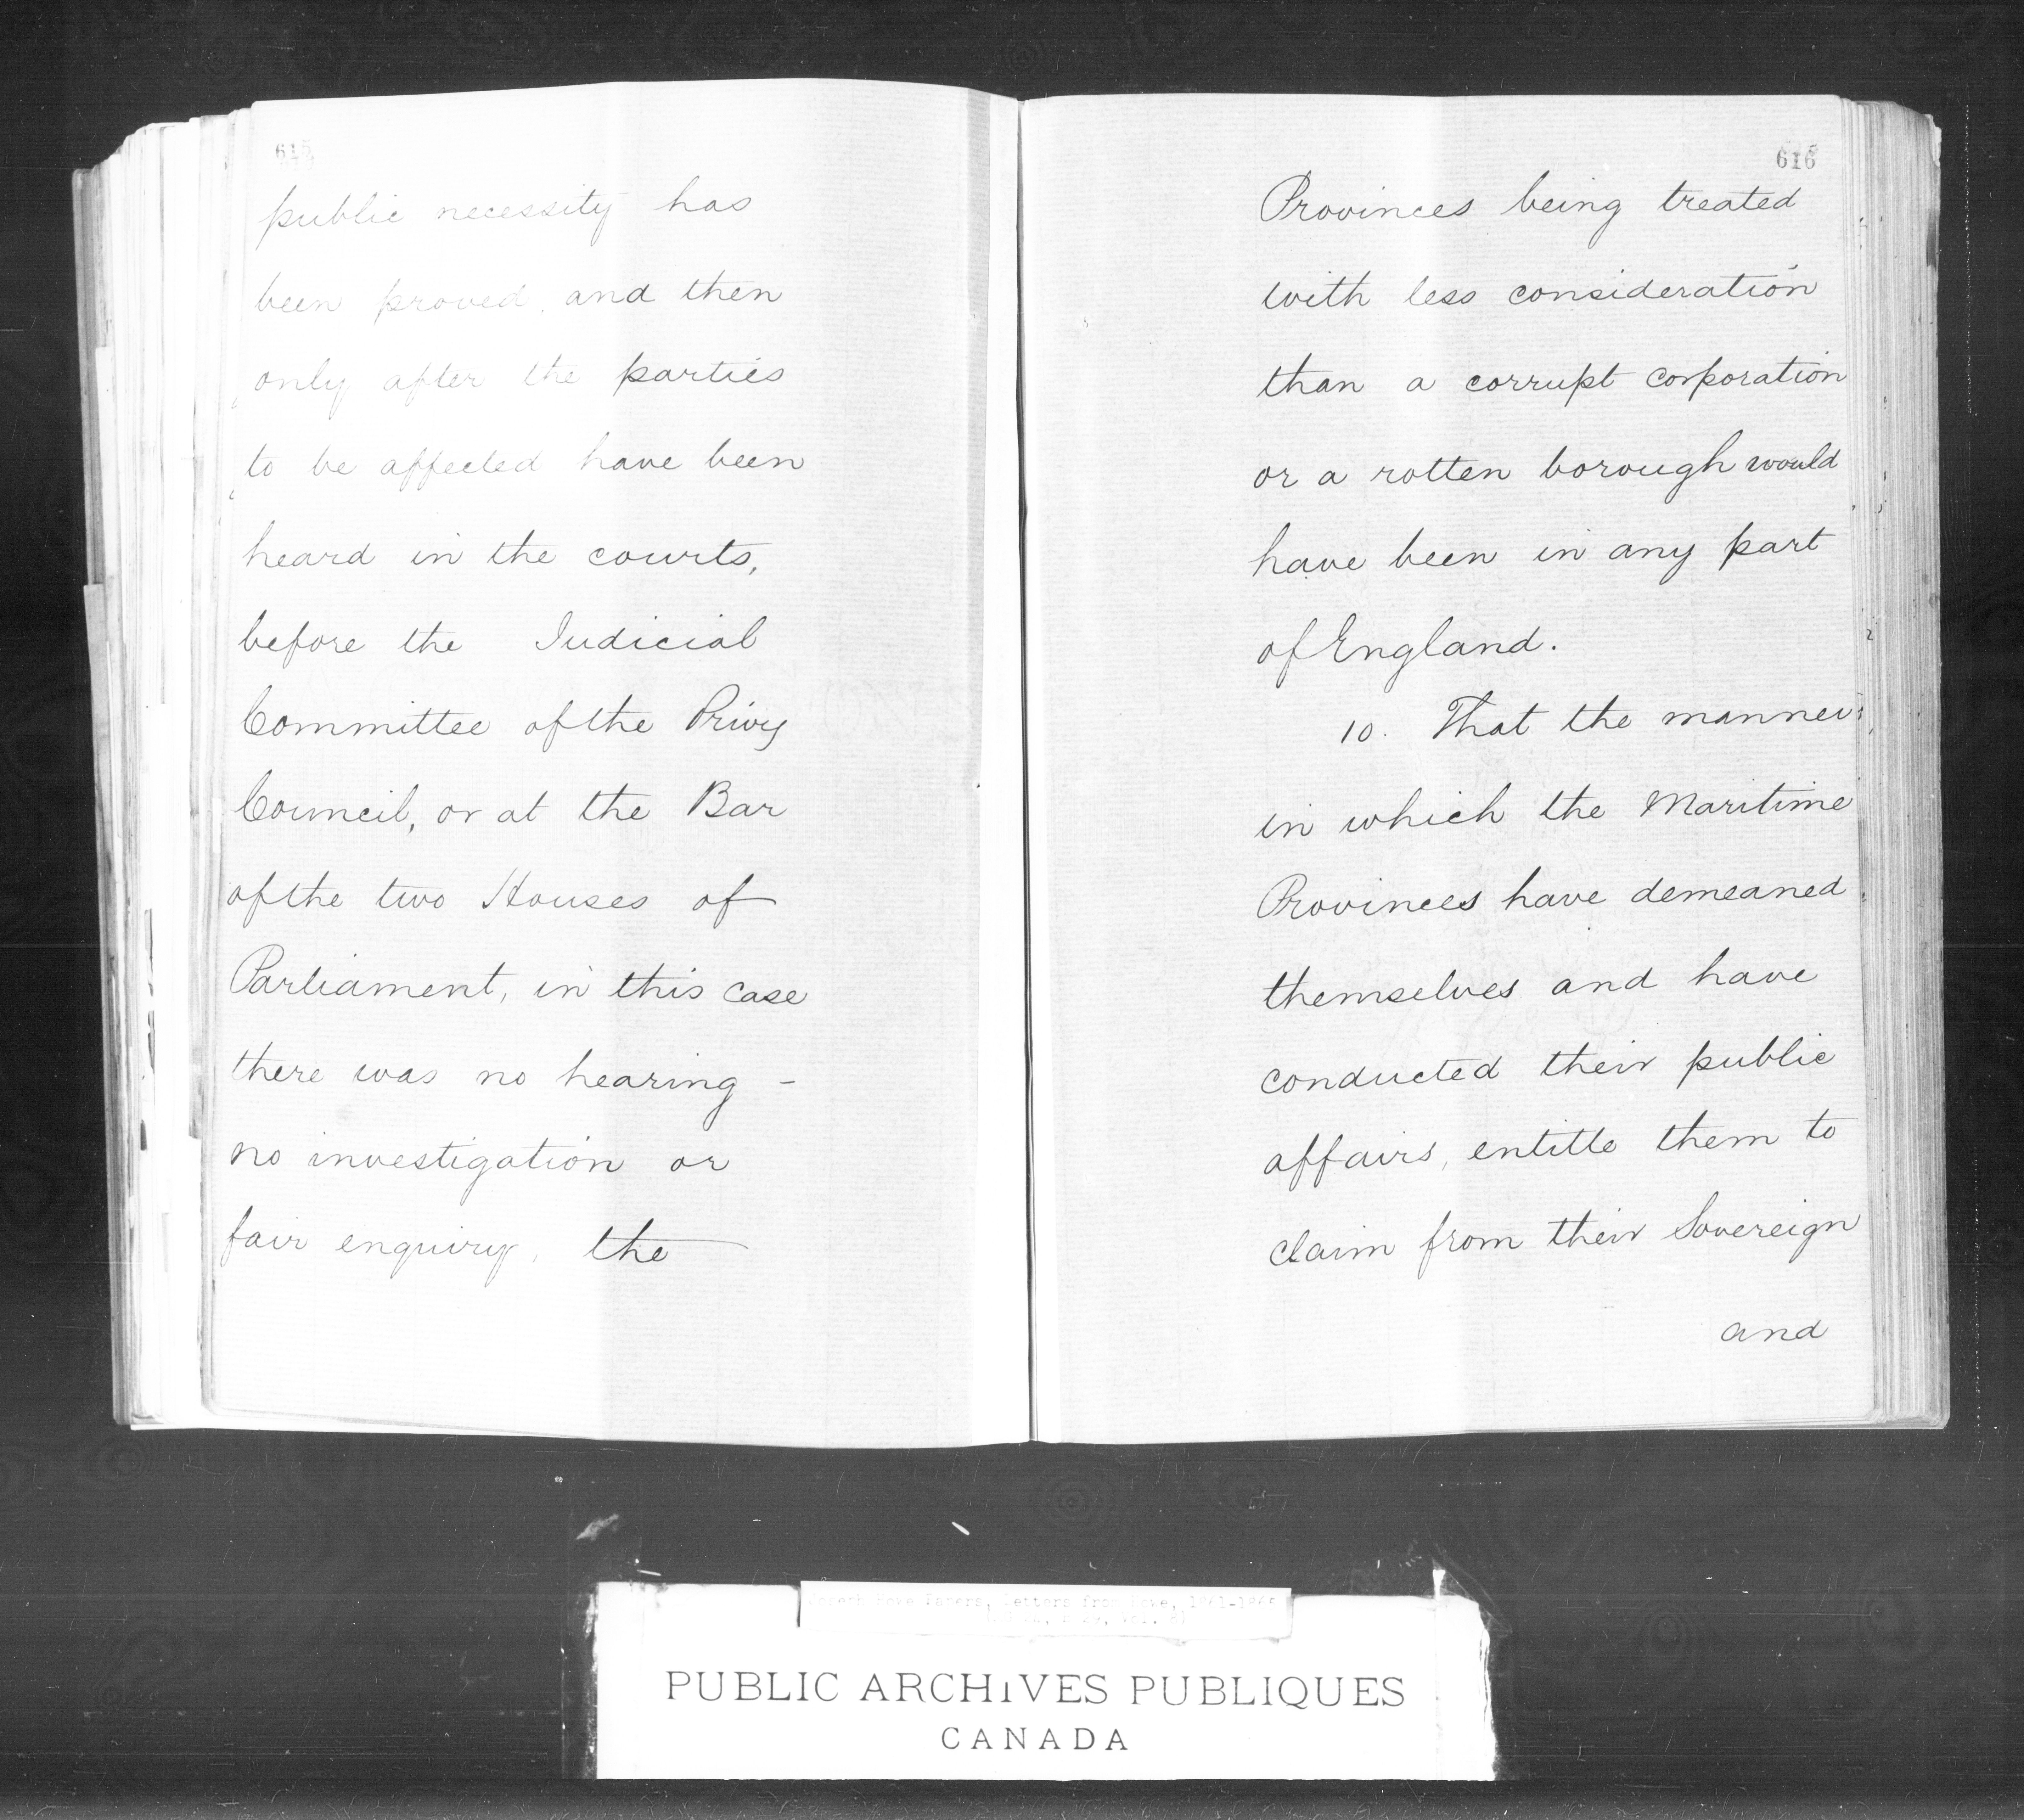 615
public necessity has
been proved, and then
only after the parties
to be affected have been
heard in the courts,
before the Judicial
Committee of the Privy
Council, or at the Bar
of the two Houses of
Parliament, in this case
there was no hearing -
no investigation or
fair enquiry, the
616
Provinces being treated
with less consideration
than a corrupt corporation
or a rotten borough would
have been in any part
of England.
10. That the manner
in which the Maritime
Provinces have demeaned
themselves and have
conducted their public
affairs, entitle them to
claim from their Sovereign
and
Joseph Howe Papers, Letters from Howe,
PUBLIC ARCHIVES PUBLIQUES
CANADA